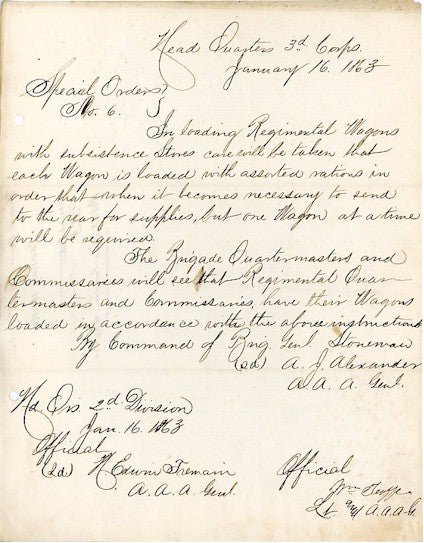 Head Quarters 3d Corps.
January 16. 1863
Special Orders
No. 6.
In loading Regimental Wagons
with subsistence Stores care will be taken that
each Wagon is loaded with assorted rations in
order that when it becomes necessary to send
to the rear for supplies, but one Wagon at a time
will be required.
The Brigade Quartermasters and
Commissaries will see that Regimental Quar-
termasters and Commissaries, have their Wagons
loaded in accordance with the above instructions
By Command of Brig. Genl Stoneman
(sd) A. J. Alexander
A. A. A. Genl.
Hd Qrs. 2nd Division
Jan. 16. 1863
Official
(sd) H Edwin Tremain
A. A. A. Genl
Official
Wm
Lt & A. A. A. G.